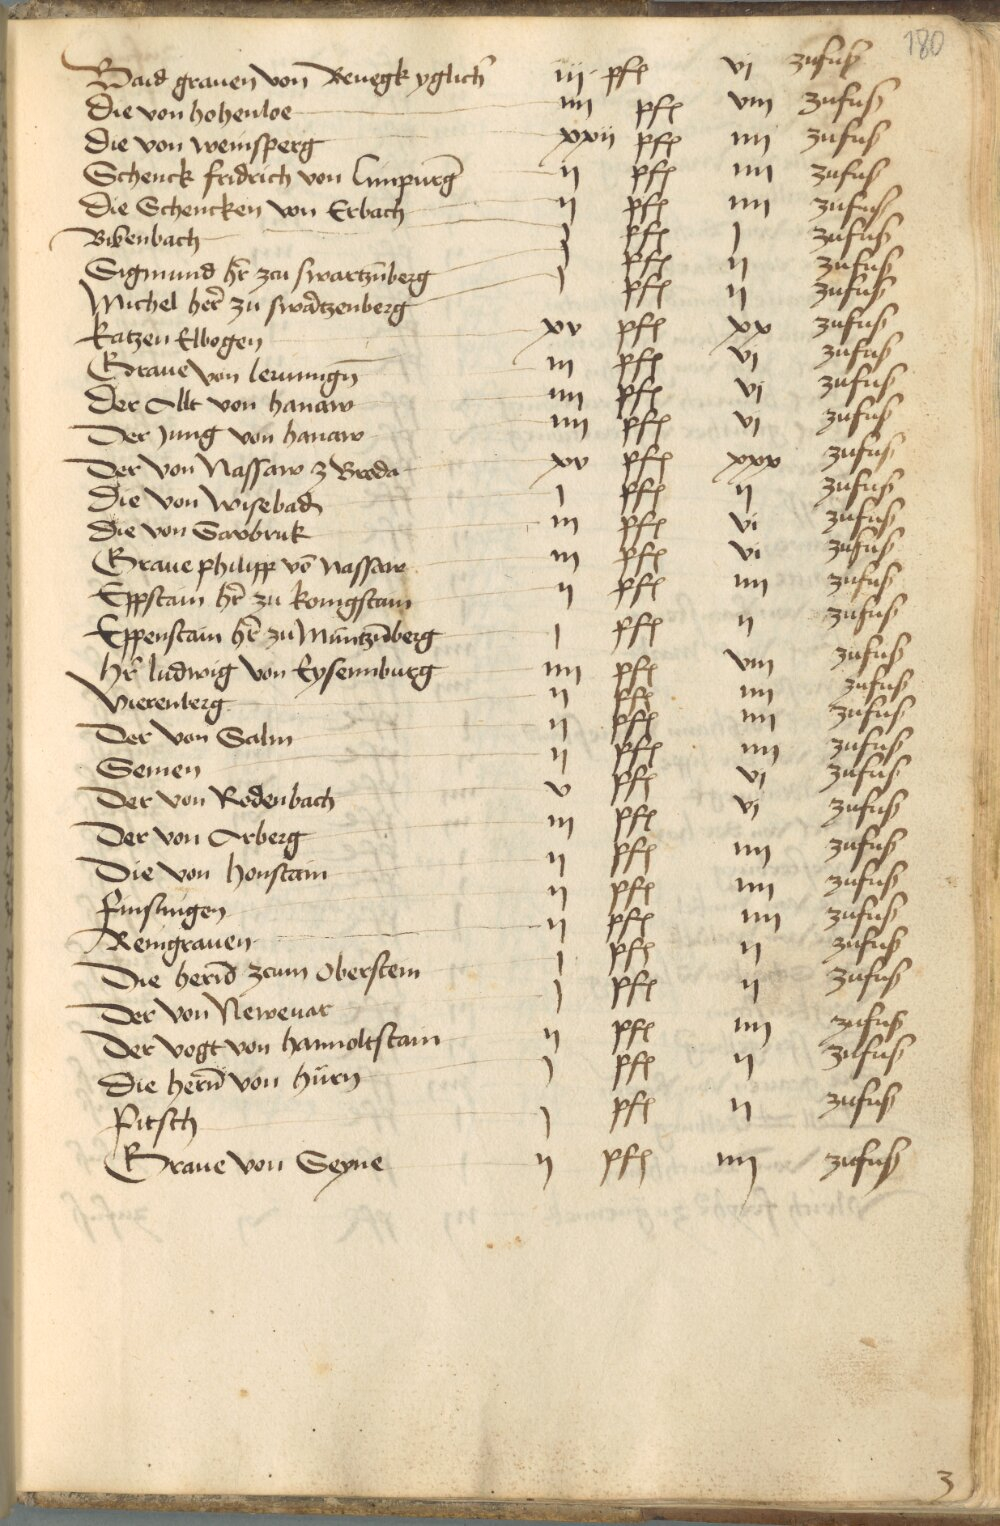 180
Baid grauen von Renegk yglich iij pferd vj zufuß
Die von hohenloe iiij pferd viij zufuß
Die von weinsperg xxij pferd iiij zufuß
Schenck fridrich von Limpurg ij pferd iiij zufuß
Die Schencken von Erbach ij pferd iiij zufuß
Bikenbach j pferd j zufuß
Sigmund her zcu swartzenberg j pferd ij zufuß
Michel her zu swartzenberg j pferd ij zufuß
Katzen Elbogen xv pferd xx zufuß
Graue von leiningen iij pferd vj zufuß
Der Allt von hanaw iiij pferd vj zufuß
Der Jung von hanaw iiij pferd vj zufuß
Der von Nassaw z Breda xv pferd xxx zufuß
Die von wisebad j pferd ij zufuß
Die von Sarbruk iij pferd vj zufuß
Graue philipp von nassaw iij pferd vj zufuß
Eppstain her zu konigstain ij pferd iiij zufuß
Eppenstain her zu Müntzenberg j pferd ij zufuß
Her ludwig von Eysennburg iiij pferd viij zufuß
Vierenberg ij pferd iiij zufuß
Der von Salm ij pferd iiij zufuß
ij pferd iiij zufuß
Der von Rodenbach v pferd vj zufuß
Der von Arberg iij pferd vj zufuß
Die von honstain ij pferd iiij zufuß
Finstingen ij pferd iiij zufuß
Reingrauen ij pferd iiij zufuß
Die herrn zcum Oberstein j pferd ij zufuß
Der von Newenar j pferd ij zufuß
Der vogt von hanoltstain ij pferd iiij zufuß
Die hern von hürn j pferd ij zufuß
Pitsch j pferd ij zufuß
Graue von Seyne ij pferd iiij zufuß
3